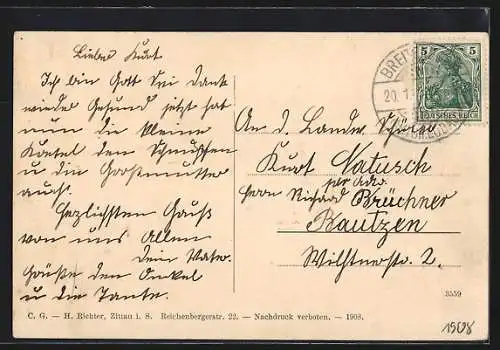 Lieber Kurt
Ich bin Gott sei Dank
wieder Gesund jetzt hat
nun die kleine
Kretel den Schnupfen
u die Großmutter
auch.
Herzlichsten Gruß
von uns Allen
dein Vater.
Grüße den Onkel
u die Tante.
BREI
20.1.
5 5
DEUTSCHES REICH
An d. Landw. Schüler
Kurt Natusch
per Adr.
Herrn Richard Brückner
Bautzen
Wilthnerstr. 2.
3559
C. G. — H. Richter, Zittau i. S. Reichenbergerstr. 22. — Nachdruck verboten. — 1908.
1908